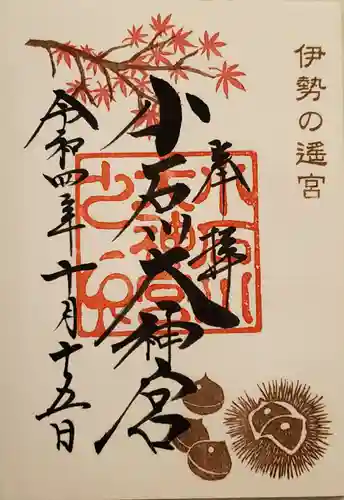 伊勢の遙宮
奉拝
小石川大神宮
令和四年十月十五日